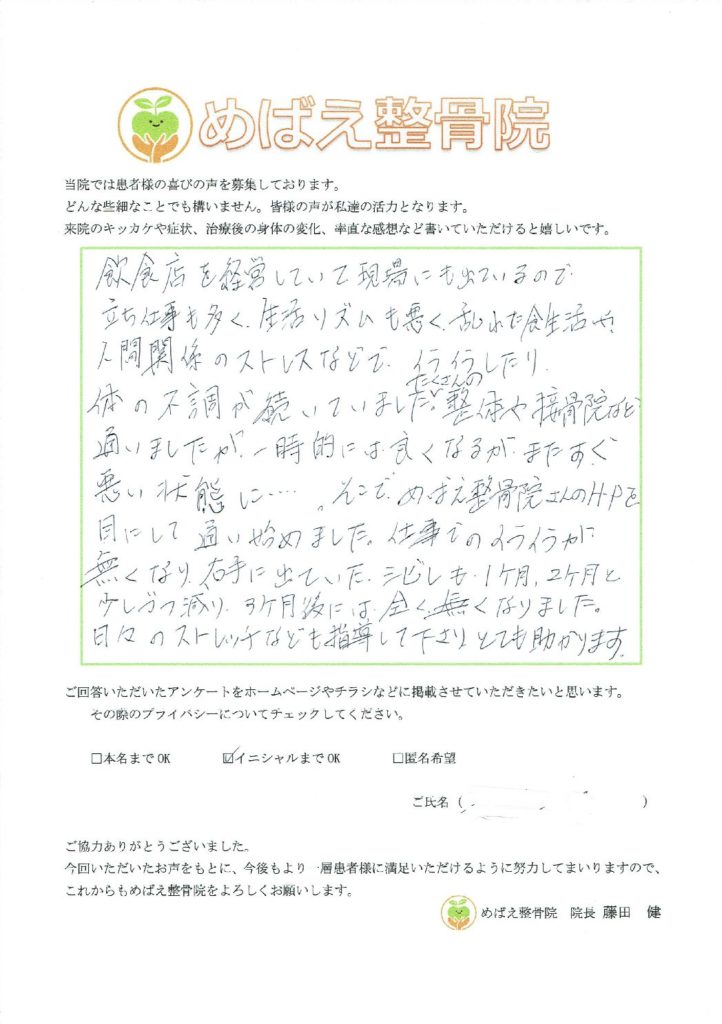 めばえ整骨院
当院では患者様の喜びの声を募集しております。
どんな些細なことでも構いません。皆様の声が私達の活力となります。
来院のキッカケや症状、治療後の身体の変化、率直な感想など書いていただけると嬉しいです。
飲食店を経営していて現場にも出ているので
立ち仕事も多く、生活リズムも悪く、乱れた食生活や
人間関係のストレスなどで、イライラしたり、
たくさんの
体の不調が続いていました。整体や接骨院など
通いましたが、一時的には良くなるが、またすぐ
悪い状態に…。そこで、めばえ整骨院さんのH・Pを
目にして通い始めました。仕事でのイライラが
無くなり、右手に出ていた、シビレも、1ケ月、2ケ月と
少しづつ減り、3ケ月後には全く無くなりました。
日々のストレッチなども指導して下さり、とても助かります。
ご回答いただいたアンケートをホームページやチラシなどに掲載させていただきたいと思います。
その際のプライバシーについてチェックしてください。
□本名までOK ☑イニシャルまでOK □匿名希望
ご氏名（ ）
ご協力ありがとうございました。
今回いただいたお声をもとに、今後もより一層患者様に満足いただけるように努力してまいりますので、
これからもめばえ整骨院をよろしくお願いします。
めばえ整骨院 院長 藤田 健